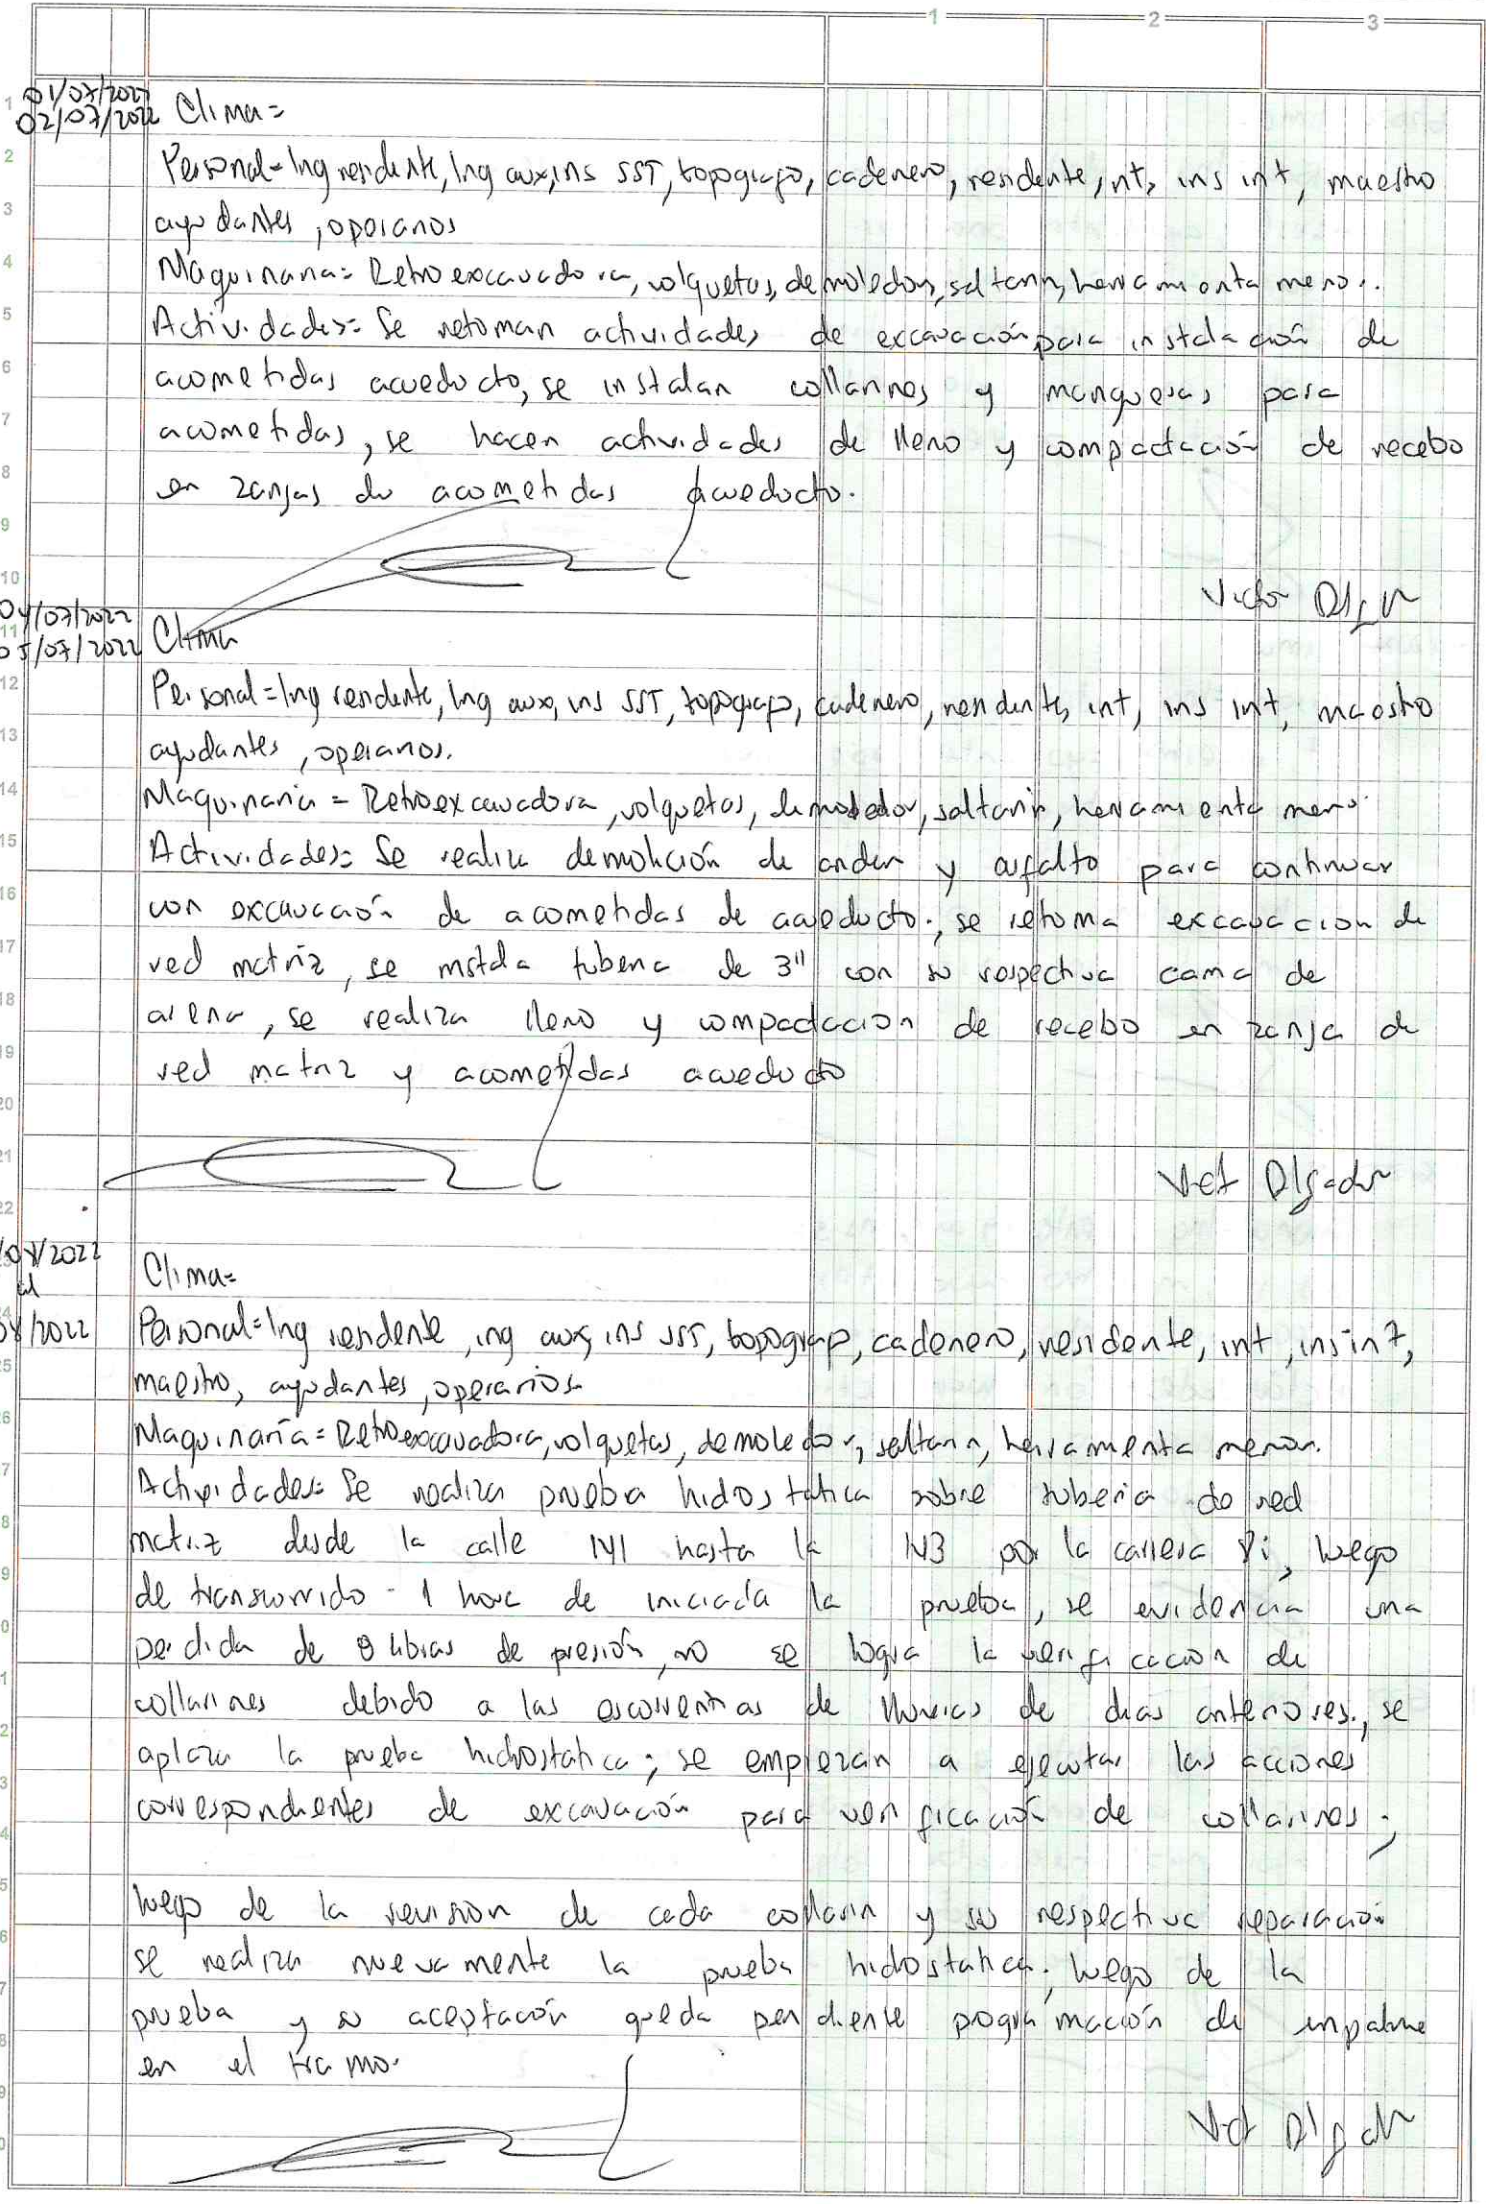 1 2 3
01/07/2022
02/07/2022 Clima=
Personal=Ing residente, Ing aux, ins SST, topografo, cadenero, residente, int, ins int, maestro
ayudantes, operarios
Maquinaria= Retroexcavadora, volquetas, demoledor, saltarin, herramienta menor.
Actividades= Se retoman actividades de excavación para instalación de
acometidas acueducto, se instalan collarines y mangueras para
acometidas, se hacen actividades de lleno y compactación de recebo
en zanjas de acometidas acueducto.
Victor
04/07/2022
05/07/2022 Clima
Personal=Ing residente, Ing aux, ins SST, topografo, cadenero, residente, int, ins int, maestro
ayudantes, operarios.
Maquinaria = Retroexcavadora, volquetas, demoledor, saltarin, herramienta menor
Actividades= Se realiza demolición de anden y asfalto para continuar
con excavación de acometidas de acueducto; se retoma excavacion de
red matriz, se instala tuberia de 3" con su respectiva cama de
arena, se realiza lleno y compactacion de recebo en zanja de
red matriz y acometidas acueducto
Delgado
/2022
Clima=
/2022 Personal=Ing residente, ing aux, ins SST, topografo, cadenero, residente, int, ins int,
maestro, ayudantes, operarios
Maquinaría= Retroexcavadora, volquetas, demoledor, saltarin, herramienta menor.
Actividades= Se realiza prueba hidrostatica sobre tuberia de red
matriz desde la calle 141 hasta la 143 por la carrera, luego
de transcurrido 1 hora de iniciada la prueba, se evidencia una
perdida de 8 libras de presión, no se logra la verificacion de
collarines debido a las escorrentias de lluvias de dias anteriores., se
aplaza la prueba hidrostatica; se empiezan a ejecutar las acciones
correspondientes de excavación para verificación de collarines;
luego de la revision de cada collarin y su respectiva reparación
se realiza nuevamente la prueba hidrostatica; luego de la
prueba y su aceptación queda pendiente programación de empalme
en el tramo.